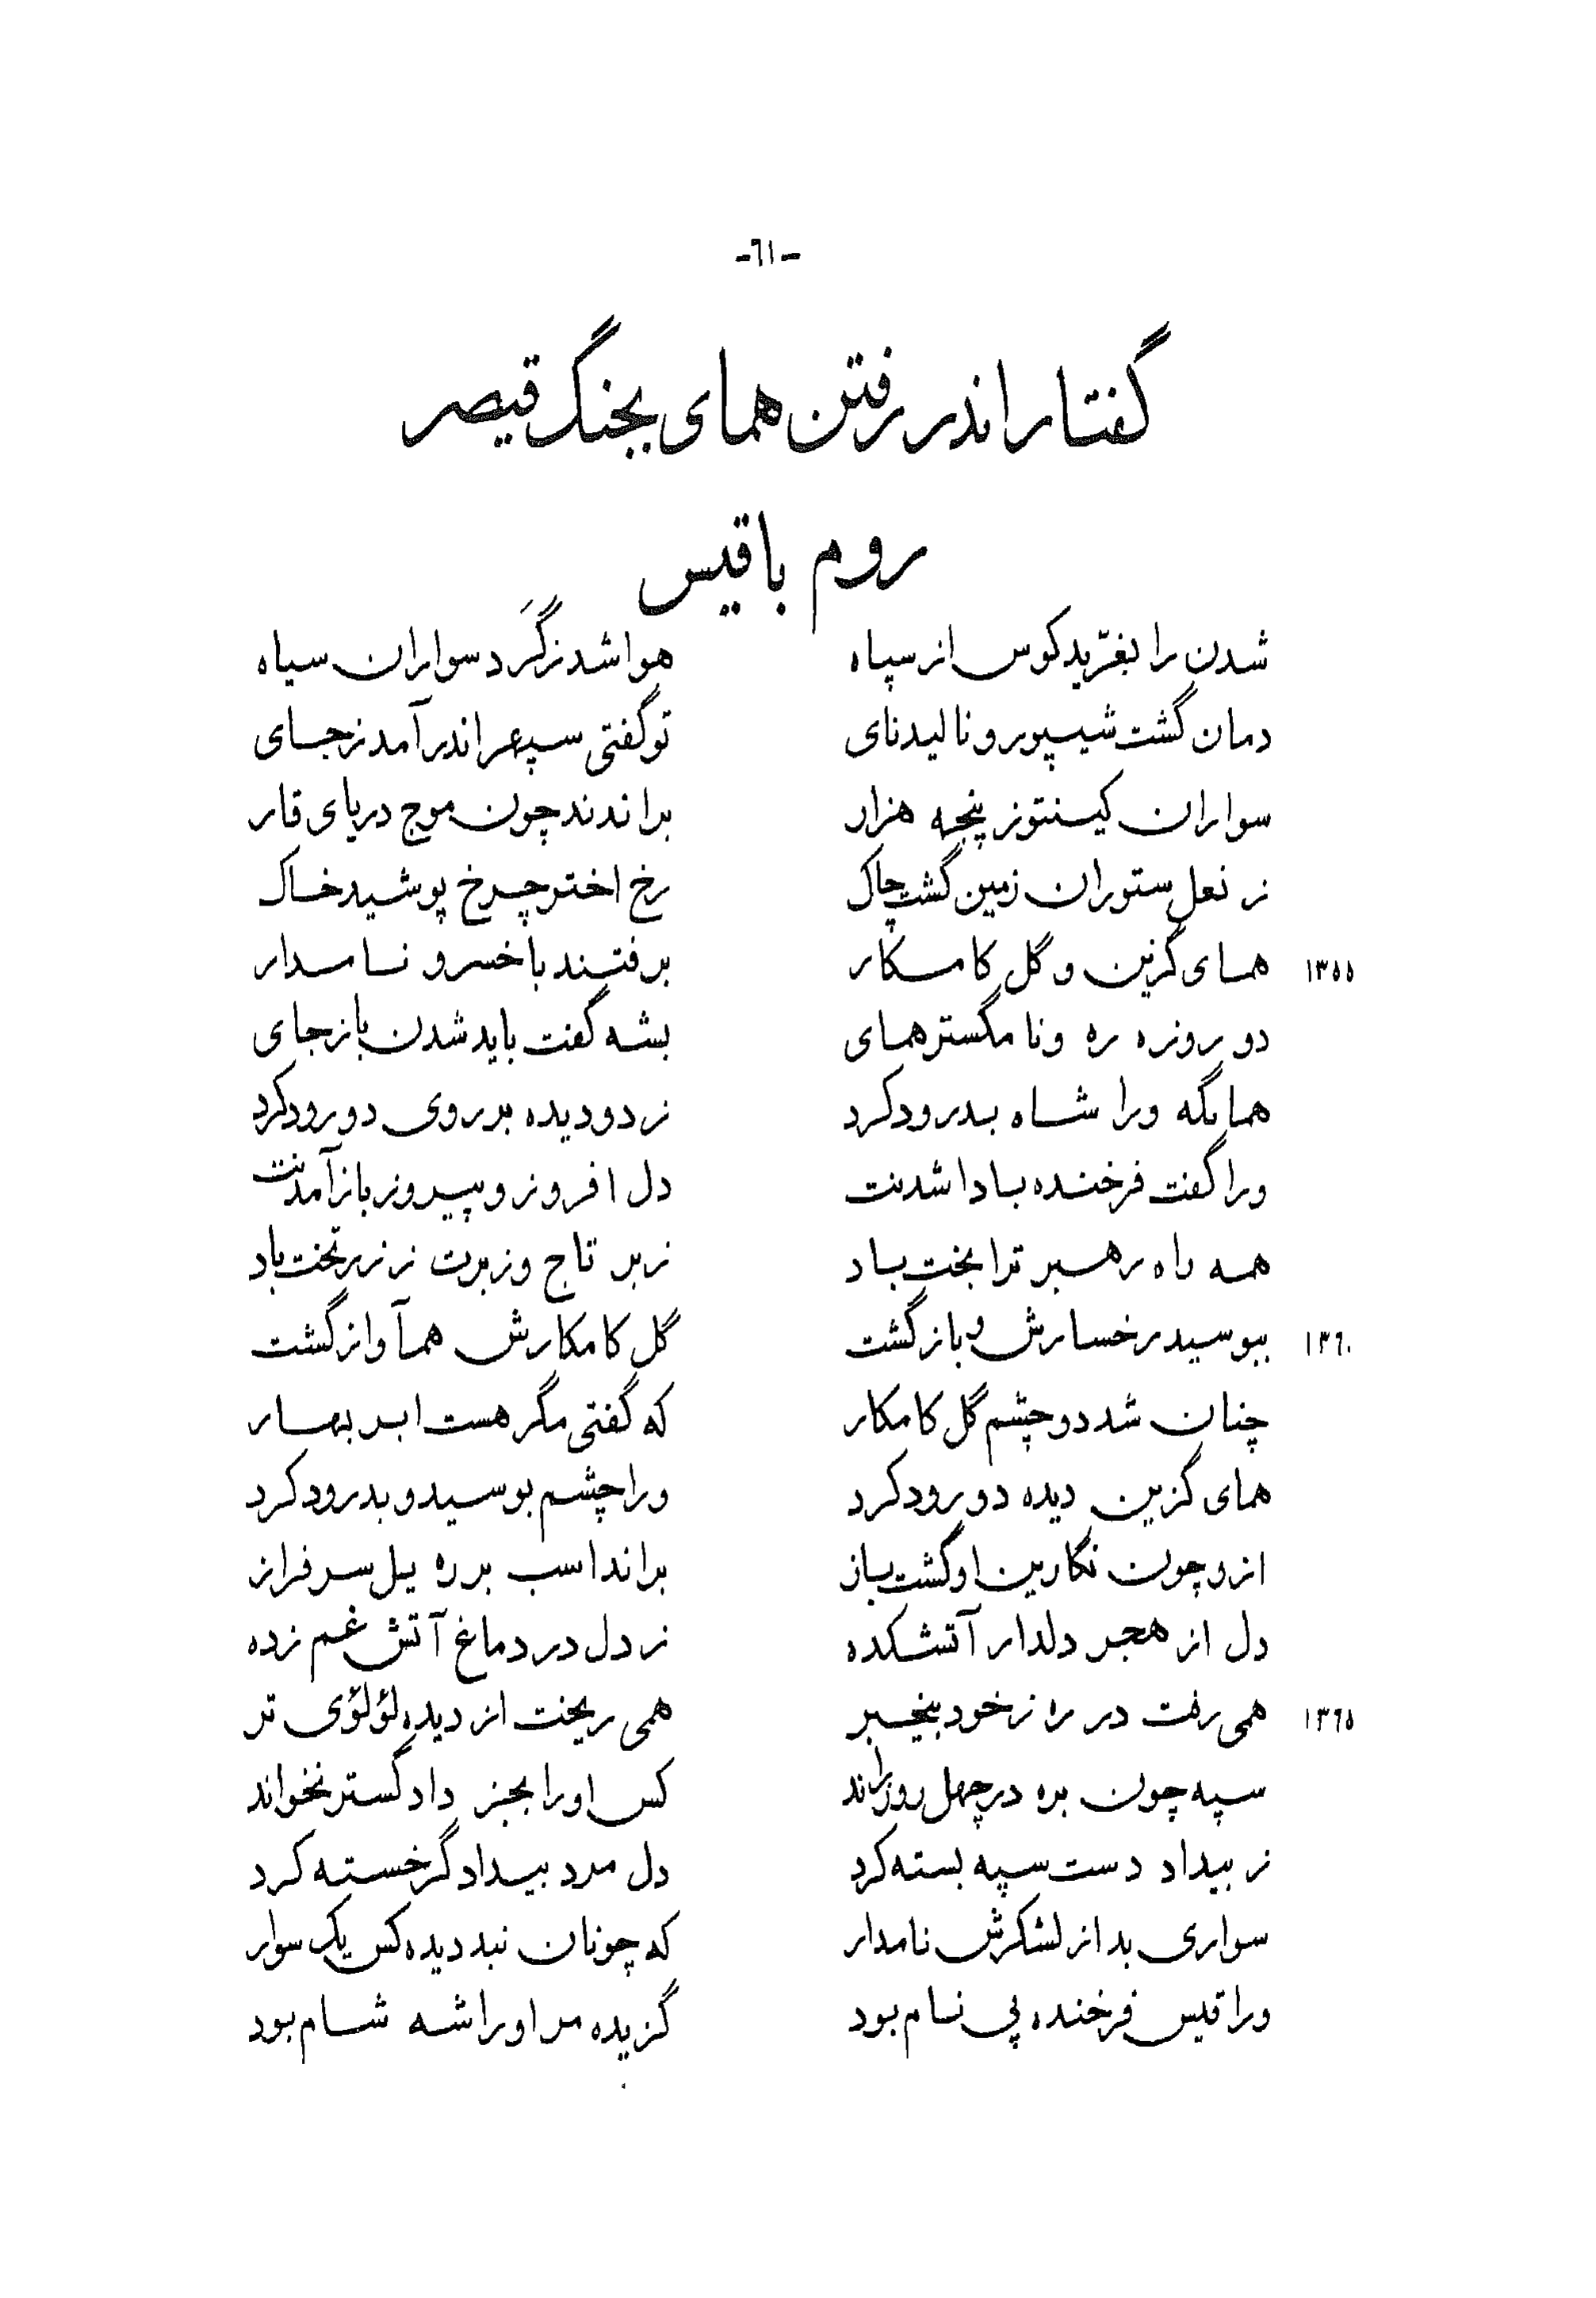 -٦١-
گفتار اندر رفتن همای بجنگ قیصر
روم با قیس
شدن را بغرّید کوس از سپاه هوا شد ز گَرد سواران سیاه
دمان گشت شیپور و نالید نای تو گفتی سپهر اندر آمد ز جای
سواران کینتوز پنجه هزار براندند چون موج دریای قار
ز نعل ستوران زمین گشت چاک رخ اختر چرخ پوشید خاک
١٣٥٥ همای گزین و گل کامکار برفتند با خسرو نامدار
دو روزه ره و نامگستر همای بشه گفت باید شدن باز جای
همانگه ورا شاه بدرود کرد ز دو دیده بر روی دو رود کرد
ورا گفت فرخنده بادا شدنت دل افروز و پیروز باز آمدنت
همه راه رهبر ترا بخت باد زبر تاج و زبرت ز زر تخت باد
١٣٦٠ ببوسید رخسارش و باز گشت گل کامکارش هم آواز گشت
چنان شد دو چشم گل کامکار که گفتی مگر هست ابر بهار
همای گزین دیده دو رود کرد ورا چشم بوسید و بدرود کرد
ازو چون نگارین او گشت باز براند اسب بر ره یل سرفراز
دل از هجر دلدار آتشکده ز دل در دماغ آتش غم زده
١٣٦٥ همی رفت در ره ز خود بیخبر همی ریخت از دیده لؤلؤی تر
سپه چون بره در چهل روز راند کس او را بجز دادگستر نخواند
ز بیداد دست سپه بسته کرد دل مرد بیدادگر خسته کرد
سواری بد از لشکرش نامدار که چونان نبد دیده کس یک سوار
ورا قیس فرخنده پی نام بود گزیده مر او را شه شام بود